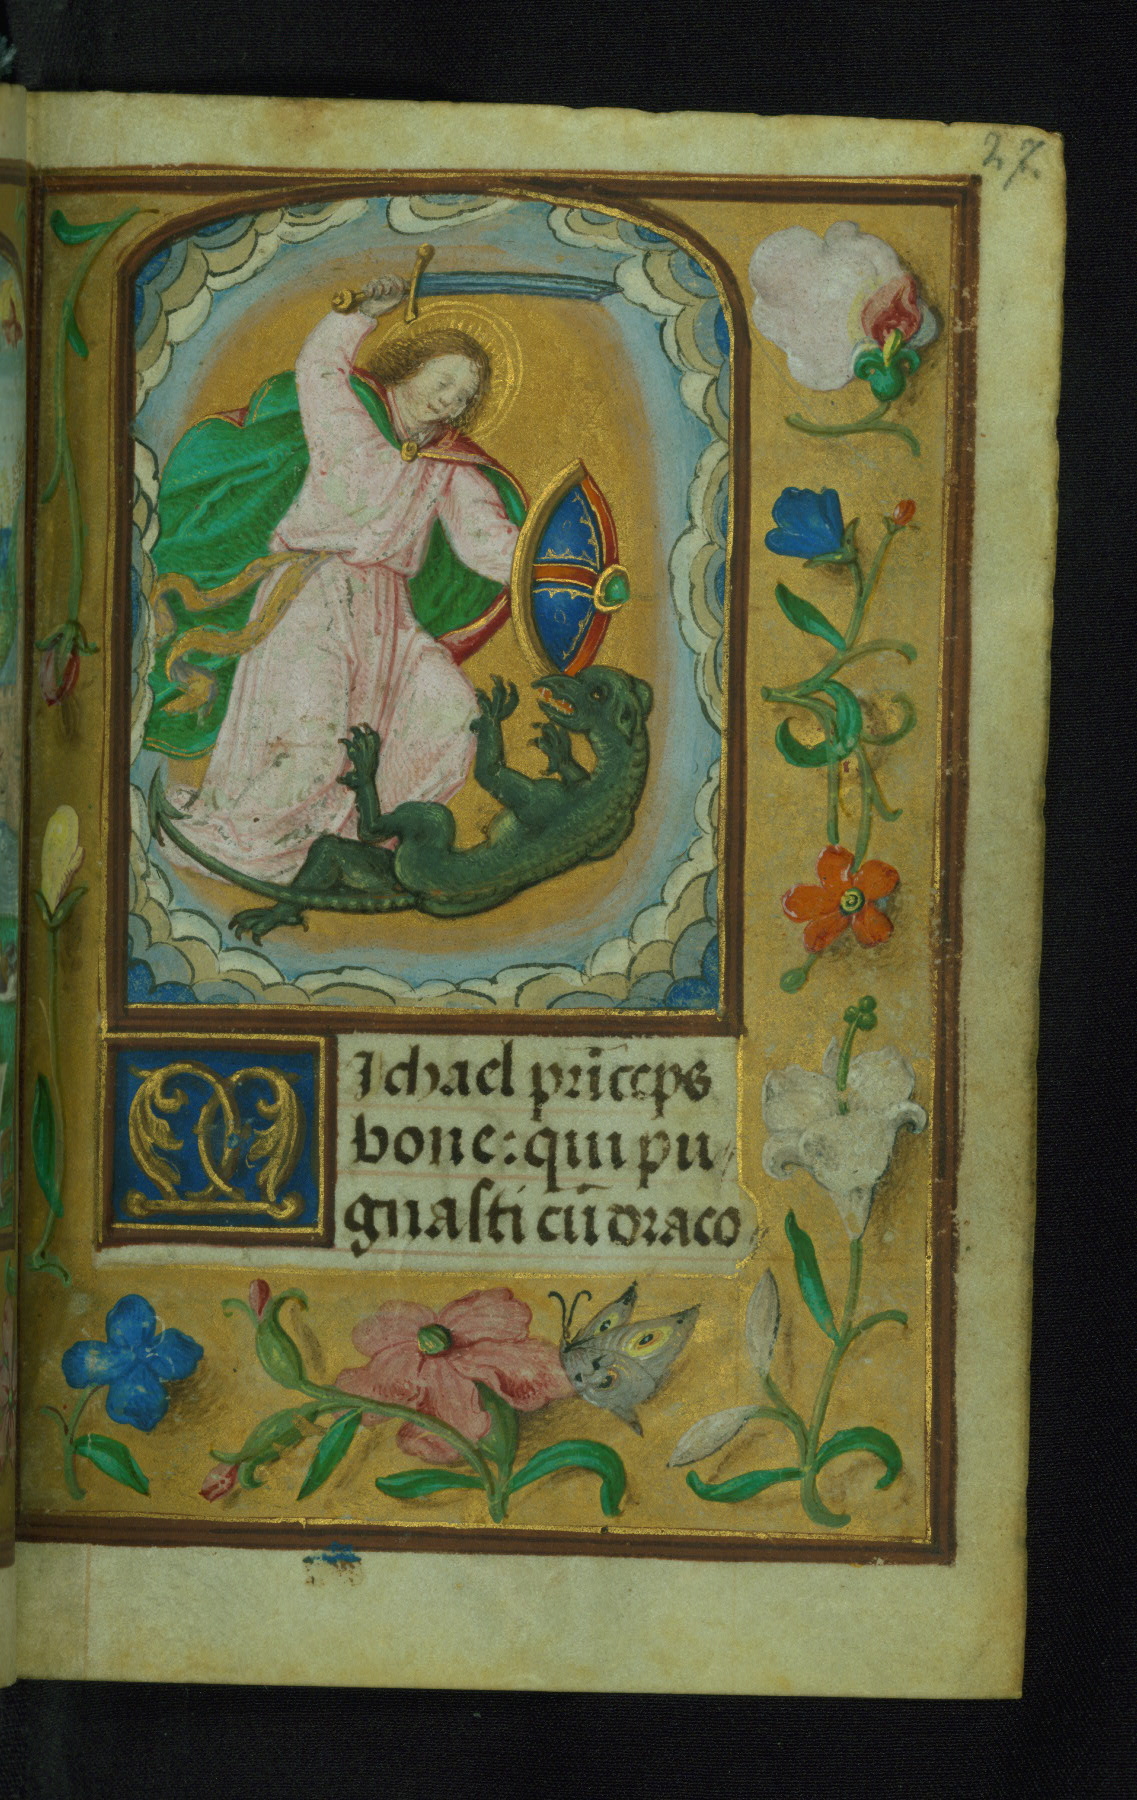 27
MIchael prīceps
bone: qui pu
gnasti cū draco